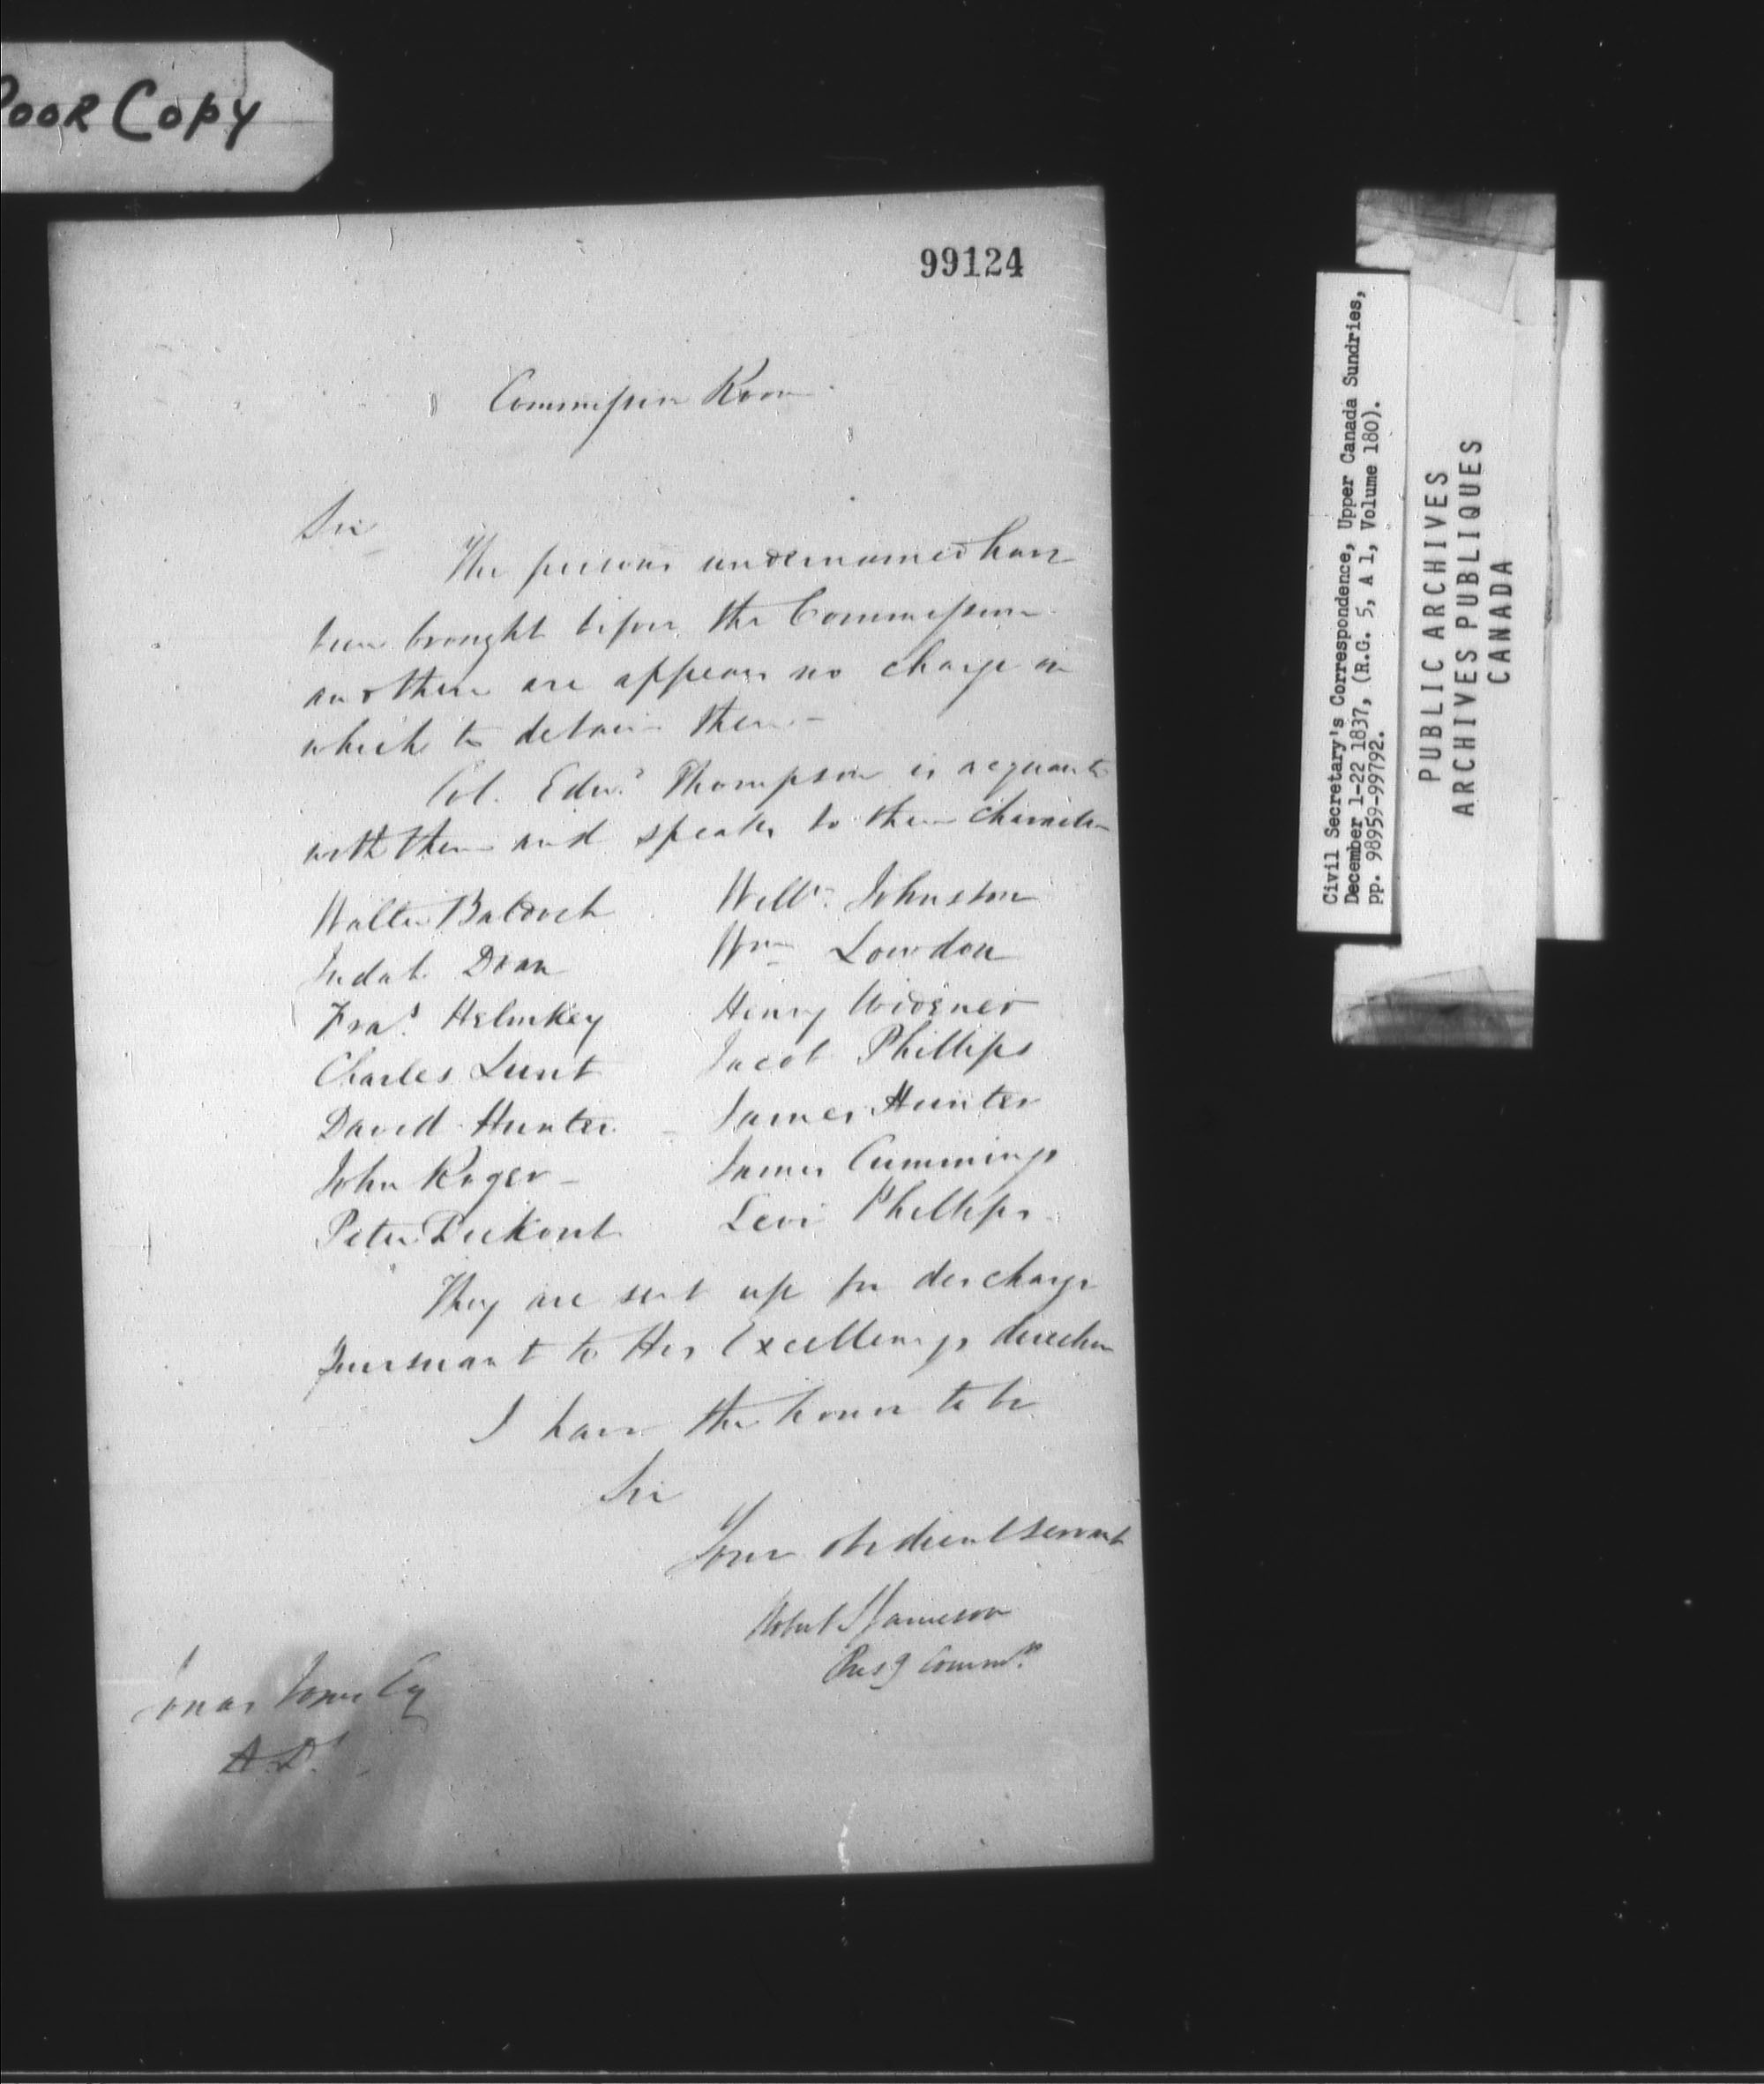 Poor Copy
99124
Commission Room
Sir
The persons undernamed have
been brought before the Commission
and there are appears no charge on
which to detain them
Col. Edwd Thompson is acquainted
with them and speaks to their character
Walter Balovch Willm Johnston
Judah Dean Wm Lowdon
Fras Helmkey Henry Widener
Charles Lunt Jacob Phillips
David Hunter James Hunter
John Roger James Cummings
Peter Deekout Levi Phillips
They are sent up for discharge
pursuant to His Excellency's direction
I have the honor to be
Sir
Your obedient servant
Robert S Jameson
Presg Commr
Jonas Jones Esq
A.D.
Civil Secretary's Correspondence, Upper Canada Sundries,
December 1-22 1837, (R.G. 5, A 1, Volume 180).
pp. 98959-99792.
PUBLIC ARCHIVES
ARCHIVES PUBLIQUES
CANADA